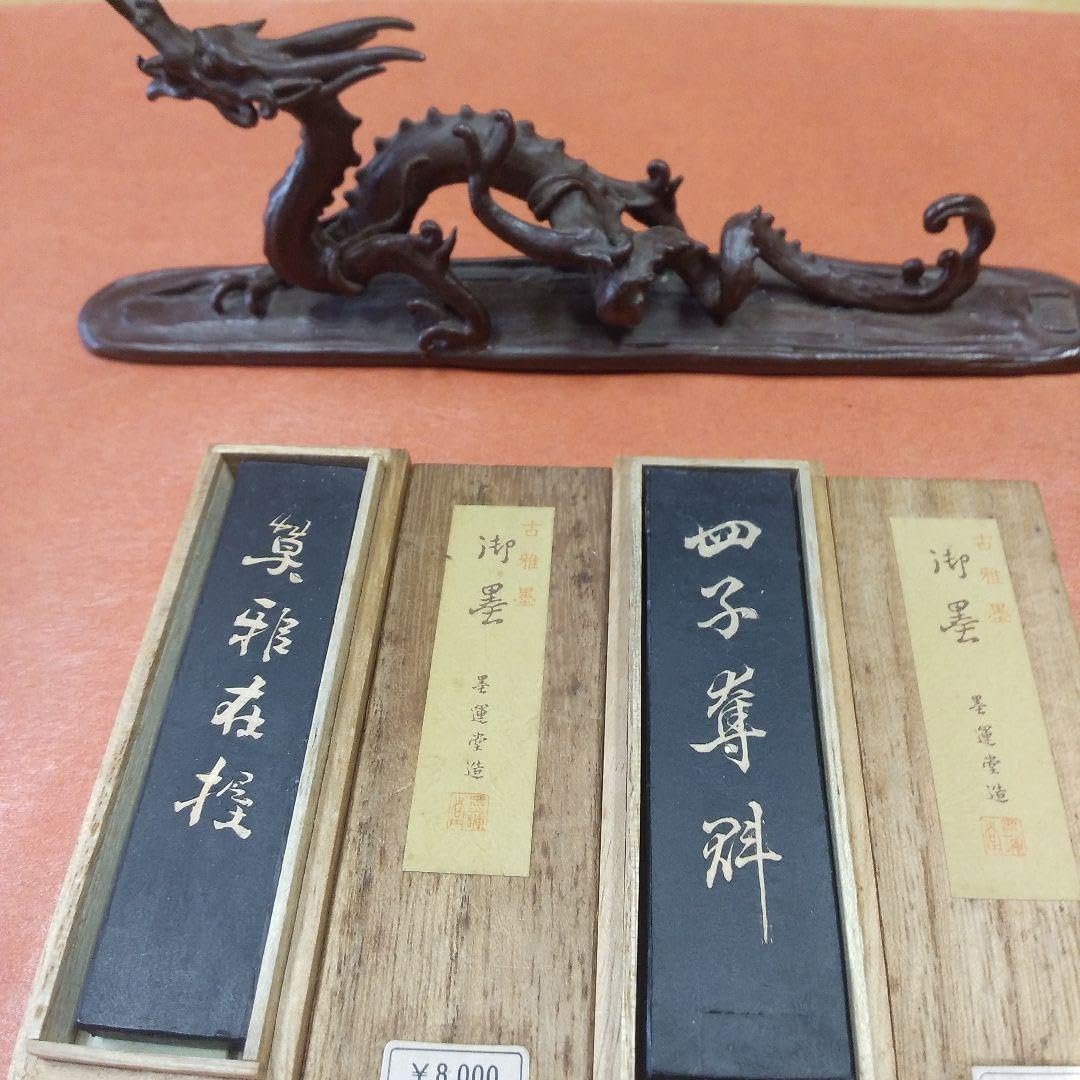 莫雅在握
古雅墨
御墨
墨運堂造
四子奪魁
古雅墨
御墨
墨運堂造
¥8,000